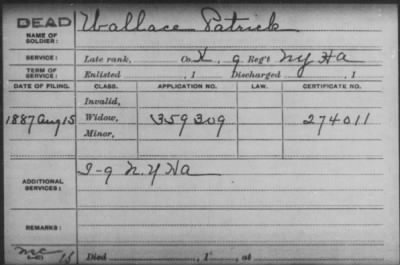 DEAD
NAME OF SOLDIER: Wallace Patrick
SERVICE: Late rank, Co. K, 9 Reg't NY HA
TERM OF SERVICE: Enlisted , 1 Discharged , 1
DATE OF FILING. CLASS. APPLICATION NO. LAW. CERTIFICATE NO.
Invalid,
1887 Aug 15 Widow, 359309 274011
Minor,
ADDITIONAL SERVICES: I-9 N.Y. HA
REMARKS:
Died , 1 , at